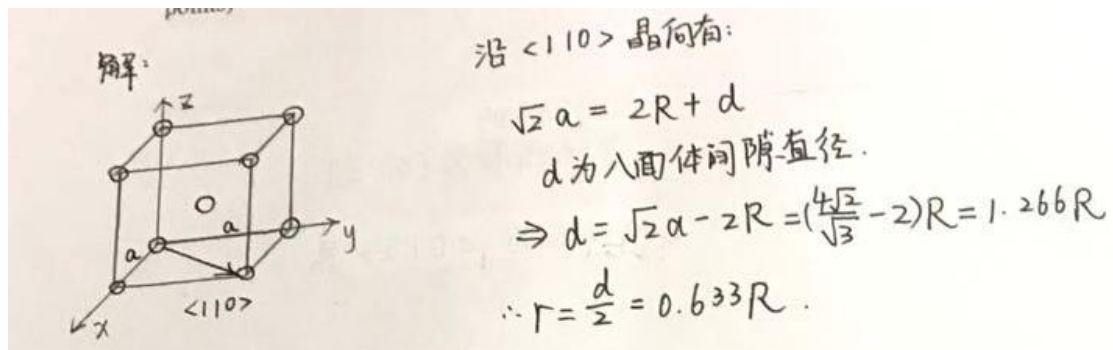 解：
z
a
a
y
x
<110>
沿<110>晶向有：
√2 a = 2R + d
d为八面体间隙直径.
⇒ d = √2a - 2R = (4√2/√3 - 2)R = 1.266R
∴ r = d/2 = 0.633R .